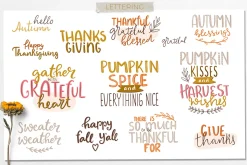 LETTERING
hello
Autumn
THANKS
GIVING
thankful
grateful
blessed
grateful
AUTUMN
BLESSINGS
happy
Thanksgiving
gather
GRATEFUL
heart
PUMPKIN
SPICE
and
EVERYTHING NICE
PUMPKIN
KISSES
and
HARVEST
wishes
Sweater
weather
happy
fall y'all
THERE IS
SO MUCH
to be
THANKFUL
FOR
GIVE
THANKS